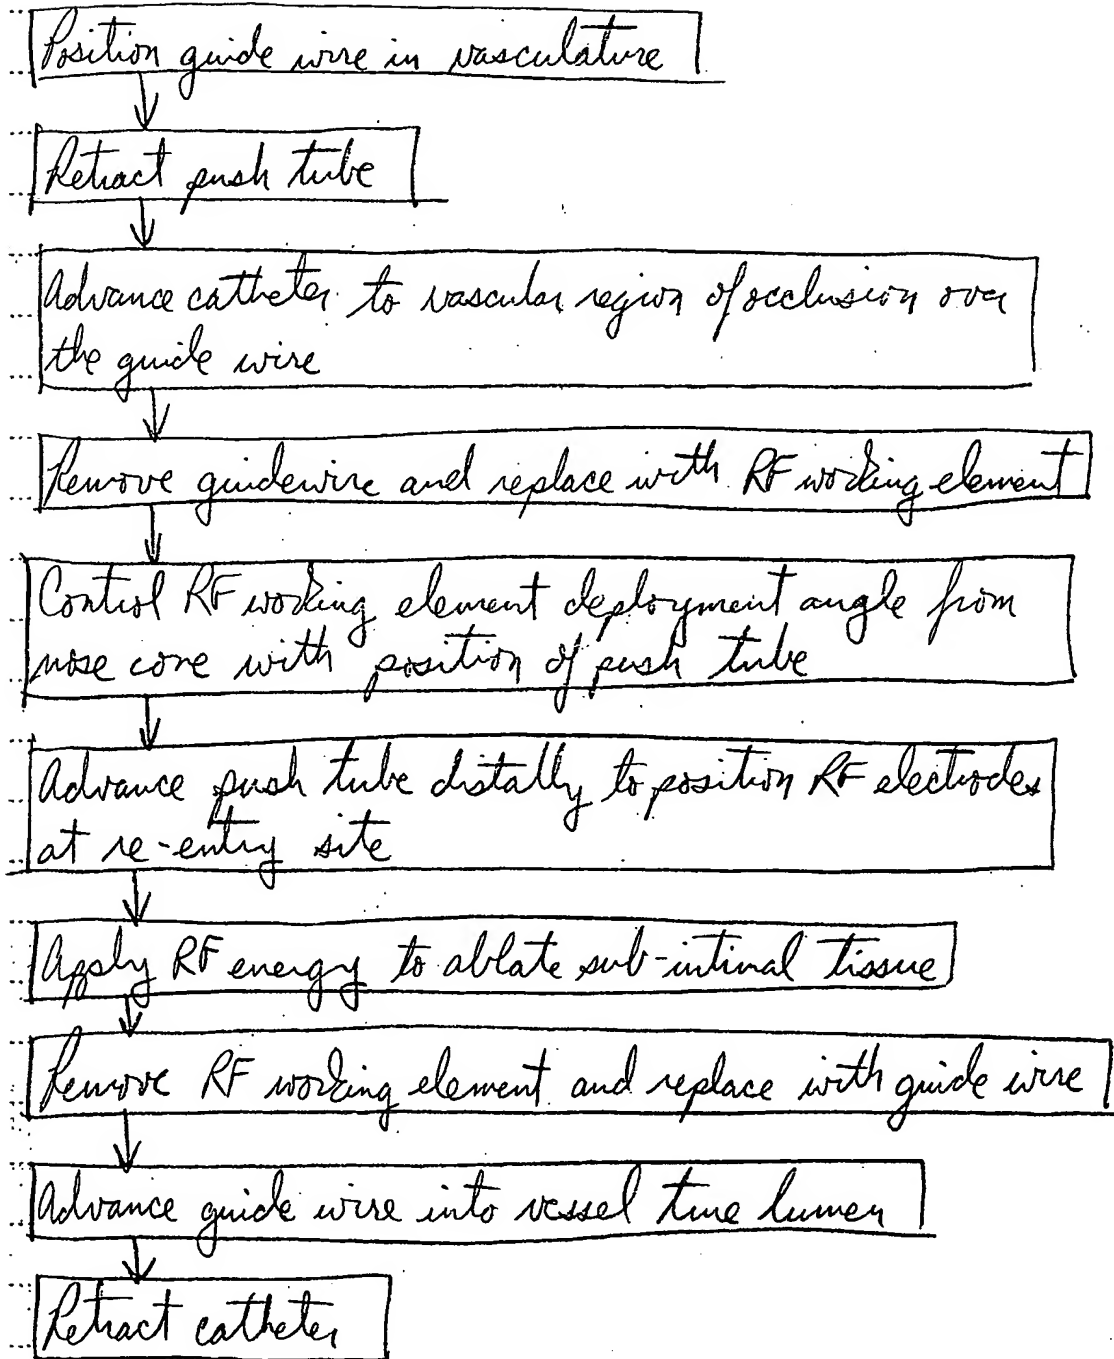 Position guide wire in vasculature
Retract push tube
Advance catheter to vascular region of occlusion over
the guide wire
Remove guidewire and replace with RF working element
Control RF working element deployment angle from
nose cone with position of push tube
Advance push tube distally to position RF electrodes
at re-entry site
Apply RF energy to ablate sub-intimal tissue
Remove RF working element and replace with guide wire
Advance guide wire into vessel true lumen
Retract catheter